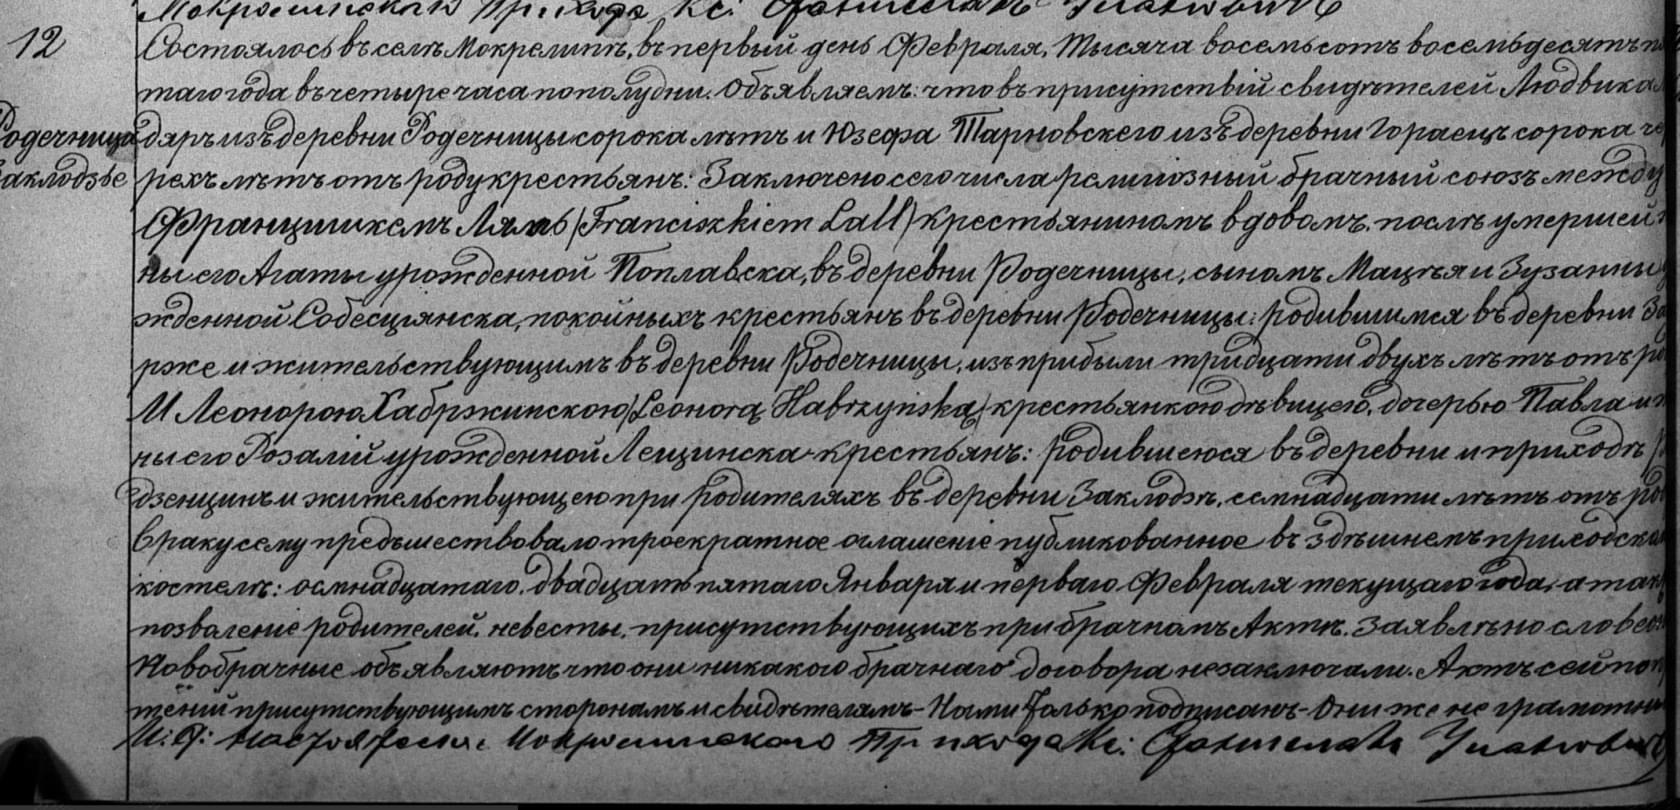 Мокрелипскаго Прихода Кс:
12
Состоялось въ селѣ Мокрелипѣ, въ первый день Февраля, тысяча восемьсотъ восемьдесятъ п
таго года въ четыре часа пополудни. Объявляемъ: что въ присутствій свидѣтелей Людвика
Родечница
дяръ изъ деревни Родечницы сорока лѣтъ и Юзефа Тарновскего изъ деревни Гораецъ сорока че
аклодзье
рехъ лѣтъ отъ роду крестьянъ: Заключено сего числа религіозный брачный союзъ между
Францишкемъ Лялъ /Franciszkiem Lall/ крестьяниномъ вдовомъ, послѣ умершей
ны его Агаты урожденной Поплавска, въ деревни Родечницы, сыномъ Мацѣя и Зузанны
жденной Собесціянска, покойныхъ крестьянъ въ деревни Родечницы: родившимся въ деревни За
рже и жительствующимъ въ деревни Родечницы, изъ прибыли тридцати двухъ лѣтъ отъ ро
И Леонорою Хабржинскою /Leonorą Habrzyńską/ крестьянкою дѣвицею, дочерью Павла и
ны его Розалій урожденной Лещинска крестьянъ: родившеюся въ деревни и приходѣ
дзенцинъ и жительствующею при родителяхъ въ деревни Заклодзѣ, семнадцати лѣтъ отъ ро
Браку сему предшествовало троекратное оглашеніе публикованное въ здѣшнемъ приходско
костелѣ: осмнадцатаго, двадцать пятаго Января и перваго Февраля текущаго года, а так
позволеніе родителей, невесты, присутствующихъ при брачномъ Актѣ. Заявлѣно словес
Новобрачные объявляютъ что они никакого брачнаго договора незаключали. Актъ сей по
теній присутствующимъ сторонамъ и свидѣтелямъ - Нами только подписанъ - Они же не грамотны
И: Д: Настоятеля Мокрелипскаго Прихода Кс: